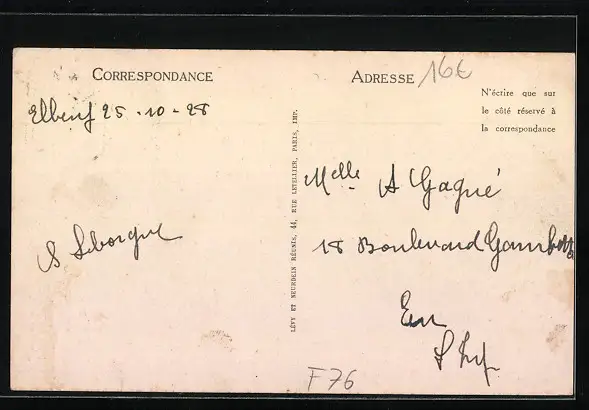 CORRESPONDANCE
ADRESSE
16€
N'écrire que sur
le côté réservé à
la correspondance
Elbeuf 25 - 10 - 28
LÉVY ET NEURDEIN RÉUNIS, 44, RUE LETELLIER, PARIS, IMP.
Melle A Gagné
18 Boulevard Gambetta
S Leborgne
F76